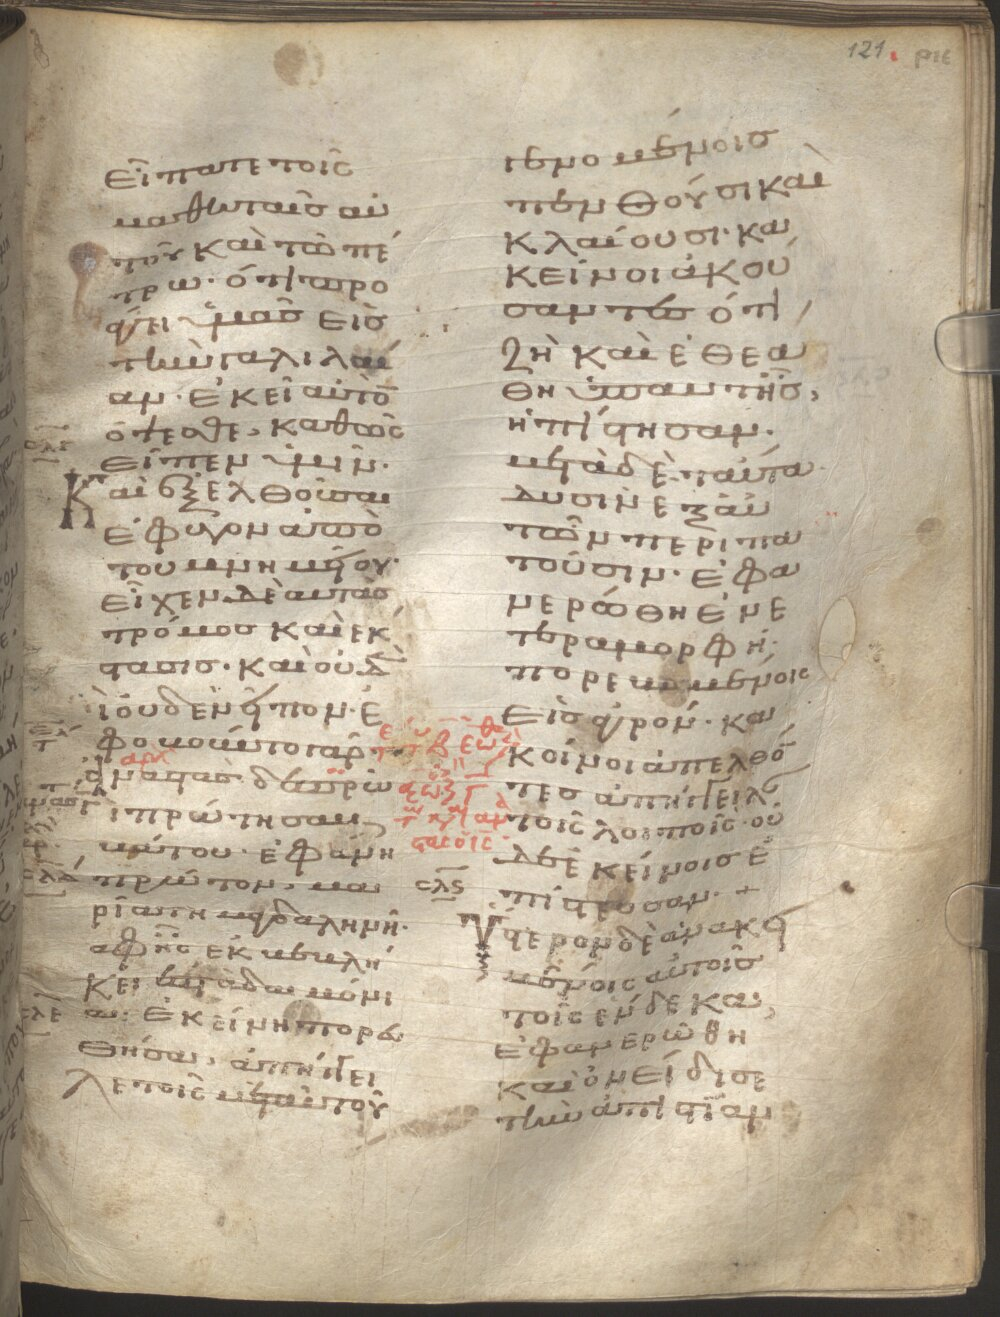 121. ριε
εἴπατε τοῖς
μαθηταῖς αὐ
τοῦ καὶ τῶ πέ
τρω· ὅτι προ
άγει ὑμᾶς εἰς
τὴν γαλιλαί
αν· ἐκεῖ αὐτὸ
ὄψεσθε, καθὼς
εἶπεν ὑμῖν·
Καὶ ἐξελθοῦσαι
ἔφυγον ἀπὸ
του μνημείου·
εἶχεν δὲ αὐτὰς
τρόμος καὶ ἔκ
στασις· καὶ οὐδ
ὶ οὐδὲν εἶπον· ἐ
φοβοῦντο γάρ
ἀναστὰς δὲ πρωῒ
πρώτη σαβ
βάτου· ἐφάνη
πρῶτον, μα
ρία τῆ μαγδαληνῆ·
ἀφ ἧς ἐκβεβλή
κει ἑπτὰ δαιμόνι
α· ἐκείνη πορευ
θῆσα, ἀπήγγει
λε τοῖς μετ αὐτοῦ
σλς
γενομένοις
πενθοῦσι καὶ
κλαίουσι· κα
κεῖνοι ἀκού
σαντες ὅτι
ζῆ καὶ ἐθεά
θη ὑπ αὐτῆς,
ἠπίστησαν·
μετὰ δὲ ταῦτα
δυσὶν ἐξ αὐ
τῶν περιπα
τοῦσιν· ἐφα
νερώθη ἐν ἑ
τέρα μορφῆ·
πορευομένοις
εἰς ἀγρόν· κα
κοῖνοι ἀπελθό
τες ἀπήγγειλ
τοῖς λοιποῖς· οὐ
δὲ ἐκείνοις ἐ
πίστευσαν· +
Ὕστερον δὲ ἀνακει
μένοις αὐτοῖς
τοῖς ἕνδεκα,
ἐφανερώθη
καὶ ὀνείδισε
τὴν ἀπιστίαν